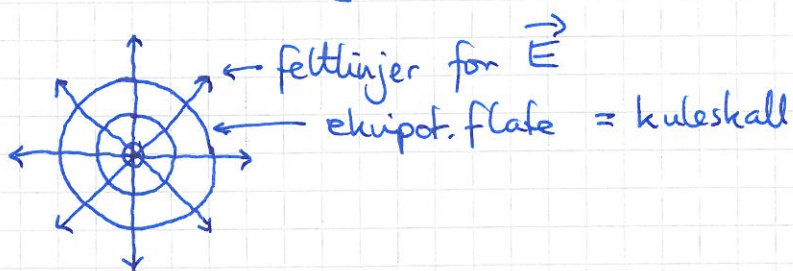 feltlinjer for E⃗
ekvipot. flate = kuleskall